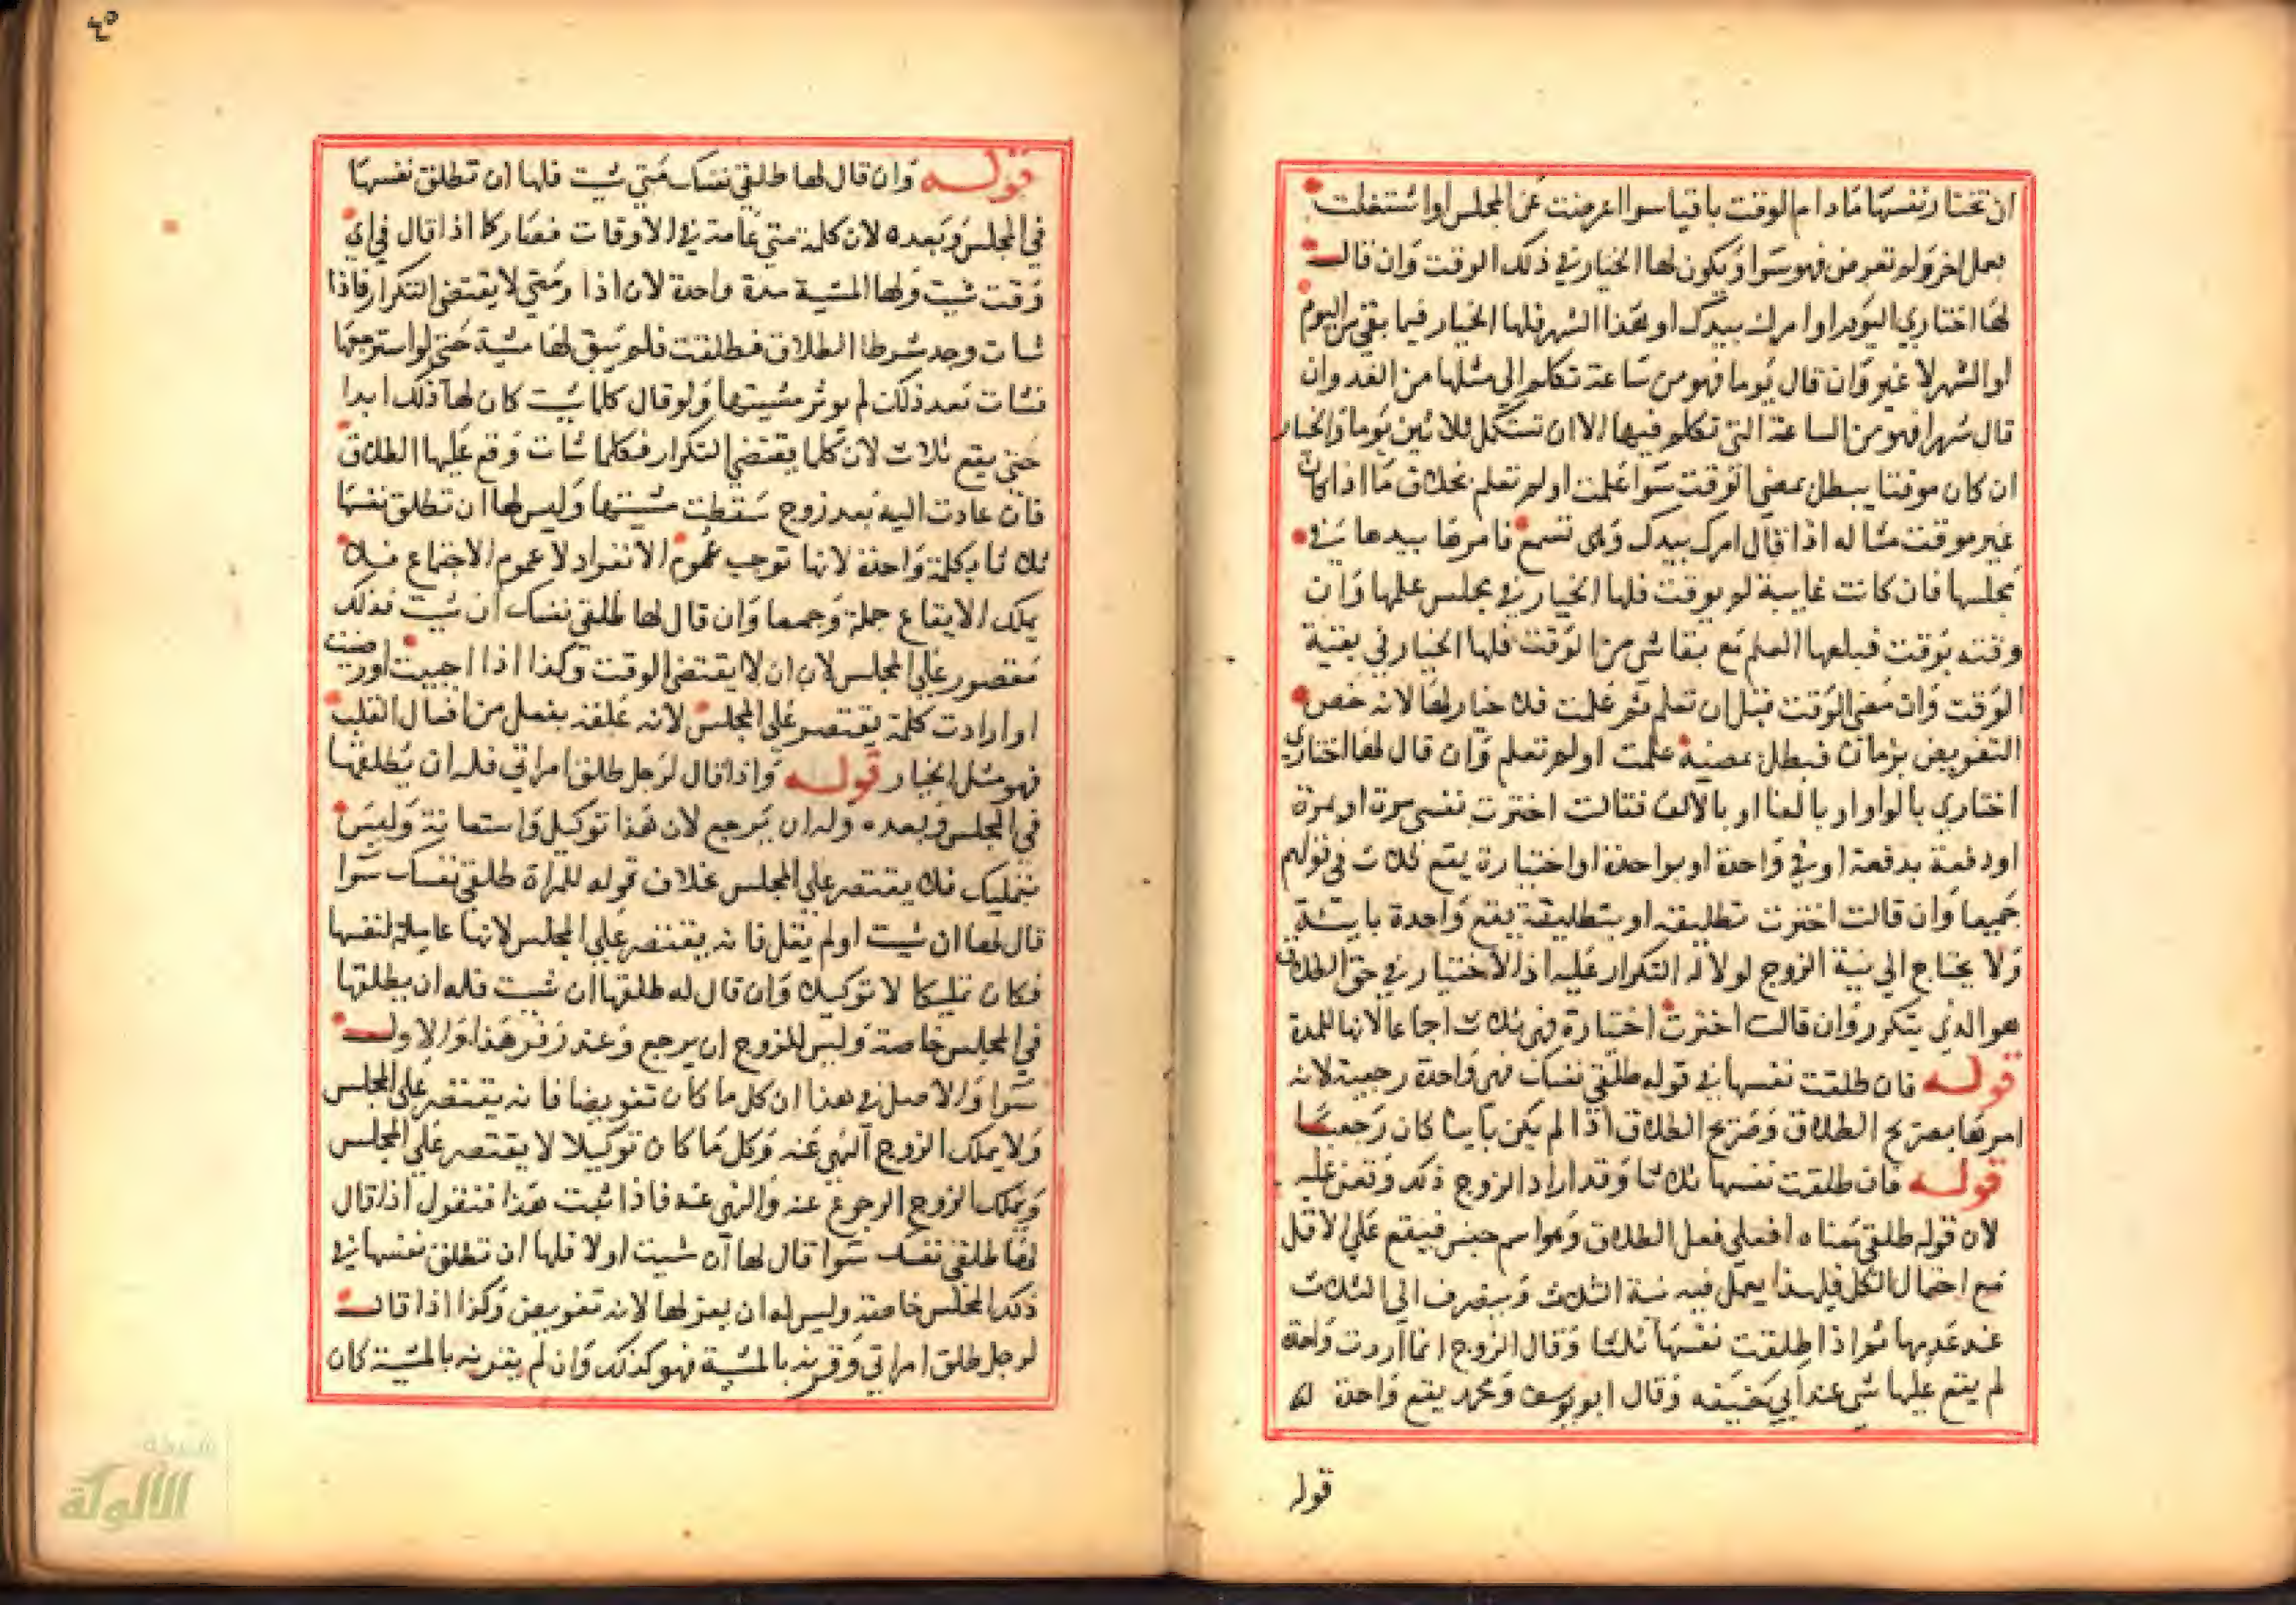 ان تختار نفسها مادام الوقت باقيا سوا اعرضت عن المجلس او اشتغلت
بعمل اخر ولم تعرض فهو سوا ويكون لها الخيار في ذلك الوقت وان قال
لها اختاري اليوم او امرك بيدك او هذا الشهر فلها الخيار فيما بقي من اليوم
او الشهر لا غير وان قال يوما فهو من ساعة تكلم الي مثلها من الغد وان
قال شهرا فهو من الساعة التي تكلم فيها الا ان تستكمل ثلاثين يوما والخيار
ان كان موقتا يبطل بمضي الوقت سوا علمت او لم تعلم بخلاف ما اذا كان
غير موقت مثاله اذا قال امرك بيدك وهي تسمع فامرها بيدها في
مجلسها فان كانت غايبة لم يوقت فلها الخيار في مجلس علمها وان
وقته بوقت فبلغها العلم مع بقا شي من الوقت فلها الخيار في بقية
الوقت وان مضي الوقت قبل ان تعلم ثم علمت فلا خيار لها لانه خص
التفويض بزمان فبطل بمضيه علمت او لم تعلم وان قال لها اختاري
اختاري بالواو او بالفا او بالالف فقالت اخترت نفسي مرة او بمرة
او دفعة بدفعة او في واحدة او بواحدة او اختيارة يقع ثلاث في قولهم
جميعا وان قالت اخترت تطليقه او بتطليقة يقع واحدة باينة
ولا يحتاج الي نية الزوج لدلالة التكرار عليه اذ الاختيار في حق الطلاق
هو الذي يتكرر وان قالت اخترت اختيارة فهي ثلاث اجماعا لانها للمدة
قوله فان طلقت نفسها في قوله طلقي نفسك فهي واحدة رجعية لانه
امرها بصريح الطلاق وصريح الطلاق اذا لم يكن باينا كان رجعيا
قوله فان طلقت نفسها ثلاثا وقد اراد الزوج ذلك وقعن عليه
لان قوله طلقي معناه افعلي فعل الطلاق وهو اسم جنس فيقع علي الاقل
مع احتمال الكل فلهذا يعمل فيه نية الثلاث وينصرف الي الثلاث
عند عدمها ثم اذا طلقت نفسها ثلاثا وقال الزوج انما اردت واحدة
لم يقع عليها شي عند ابي حنيفه وقال ابو يوسف ومحمد يقع واحدة
قوله
٤٥
قوله وان قال لها طلقي نفسك متي شيت فلها ان تطلق نفسها
في المجلس وبعده لان كلمة متي عامة في الاوقات فصار كما اذا قال في اي
وقت شيت ولها المشية مرة واحدة لان اذا ومتي لا يقتضي التكرار فاذا
شات وجد شرط الطلاق فطلقت فلم يبق لها مشية حتي لو استرجعها
فشات بعد ذلك لم يوثر مشيتها ولو قال كلما شيت كان لها ذلك ابدا
حتي يقع ثلاث لان كلما يقتضي التكرار فكلما شات وقع عليها الطلاق
فان عادت اليه بعد زوج سقطت مشيتها وليس لها ان تطلق نفسها
ثلاثا بكلمة واحدة لانها توجب عموم الانفراد لا عموم الاجتماع فلا
يملك الايقاع جملة وجمعا وان قال لها طلقي نفسك ان شيت فذلك
مقصور علي المجلس لان ان لا يقتضي الوقت وكذا اذا احببت او رضيت
او ارادت كلمة يقتصر علي المجلس لانه علقه بفعل من افعال القلب
فهو مثل الخيار قوله واذا قال لرجل طلق امراتي فله ان يطلقها
في المجلس وبعده وله ان يرجع لان هذا توكيل واستعانة وليس
بتمليك فلا يقتصر علي المجلس بخلاف قوله للمراة طلقي نفسك سوا
قال لها ان شيت او لم يقل فانه يقتصر علي المجلس لانها عاملة لنفسها
فكان تمليكا لا توكيلا وان قال له طلقها ان شيت فله ان يطلقها
في المجلس خاصة وليس للزوج ان يرجع وعند زفر هذا والاول
سوا والاصل في هذا ان كل ما كان تفويضا فانه يقتصر علي المجلس
ولا يملك الزوج النهي عنه وكل ما كان توكيلا لا يقتصر علي المجلس
ويملك الزوج الرجوع عنه والنهي عنه فاذا ثبت هذا فنقول اذا قال
لها طلقي نفسك سوا قال لها ان شيت او لا فلها ان تطلق نفسها في
ذلك المجلس خاصة وليس له ان يعزلها لانه تفويض وكذا اذا قال
لرجل طلق امراتي وقرنه بالمشية فهو كذلك وان لم يقرنه بالمشية كان
شبكة
الألوكة